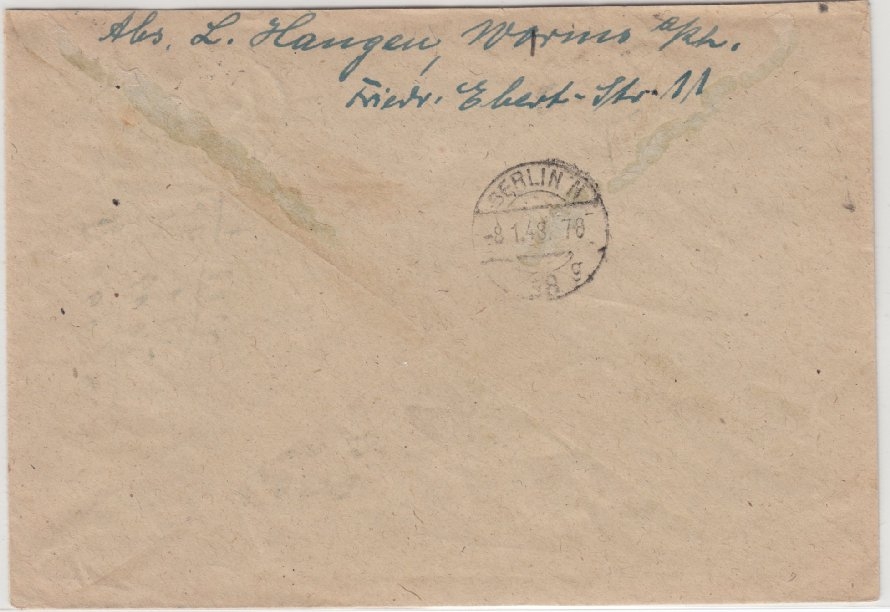 Abs. L. Haugen, Worms a/Rh.
Friedr. Ebert-Str. 11
BERLIN N
-8.1.48. 18
g